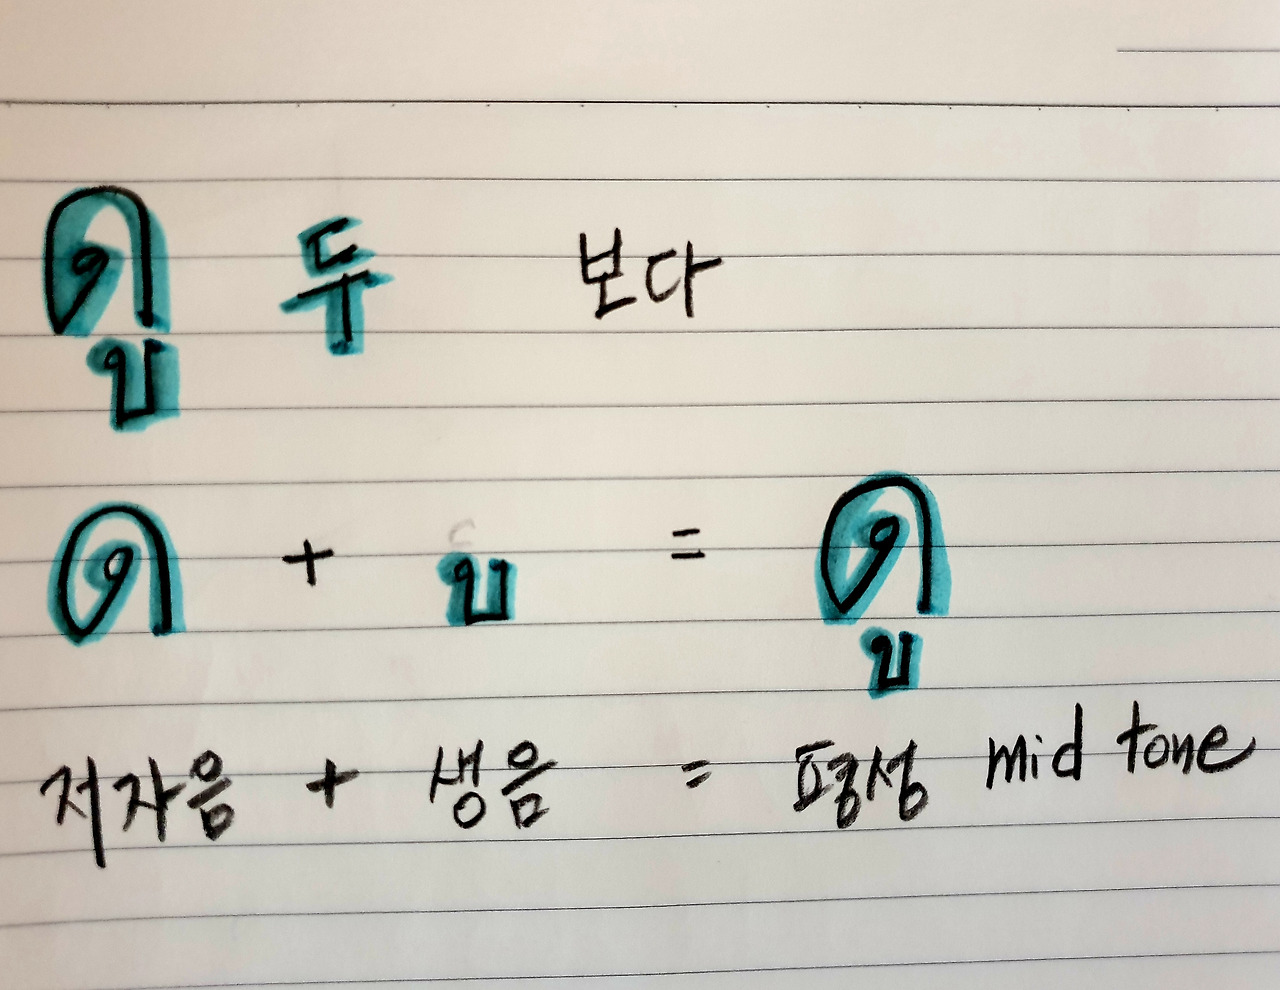 ดู 두 보다
ด + ู = ดู
저자음 + 생음 = 평성 mid tone